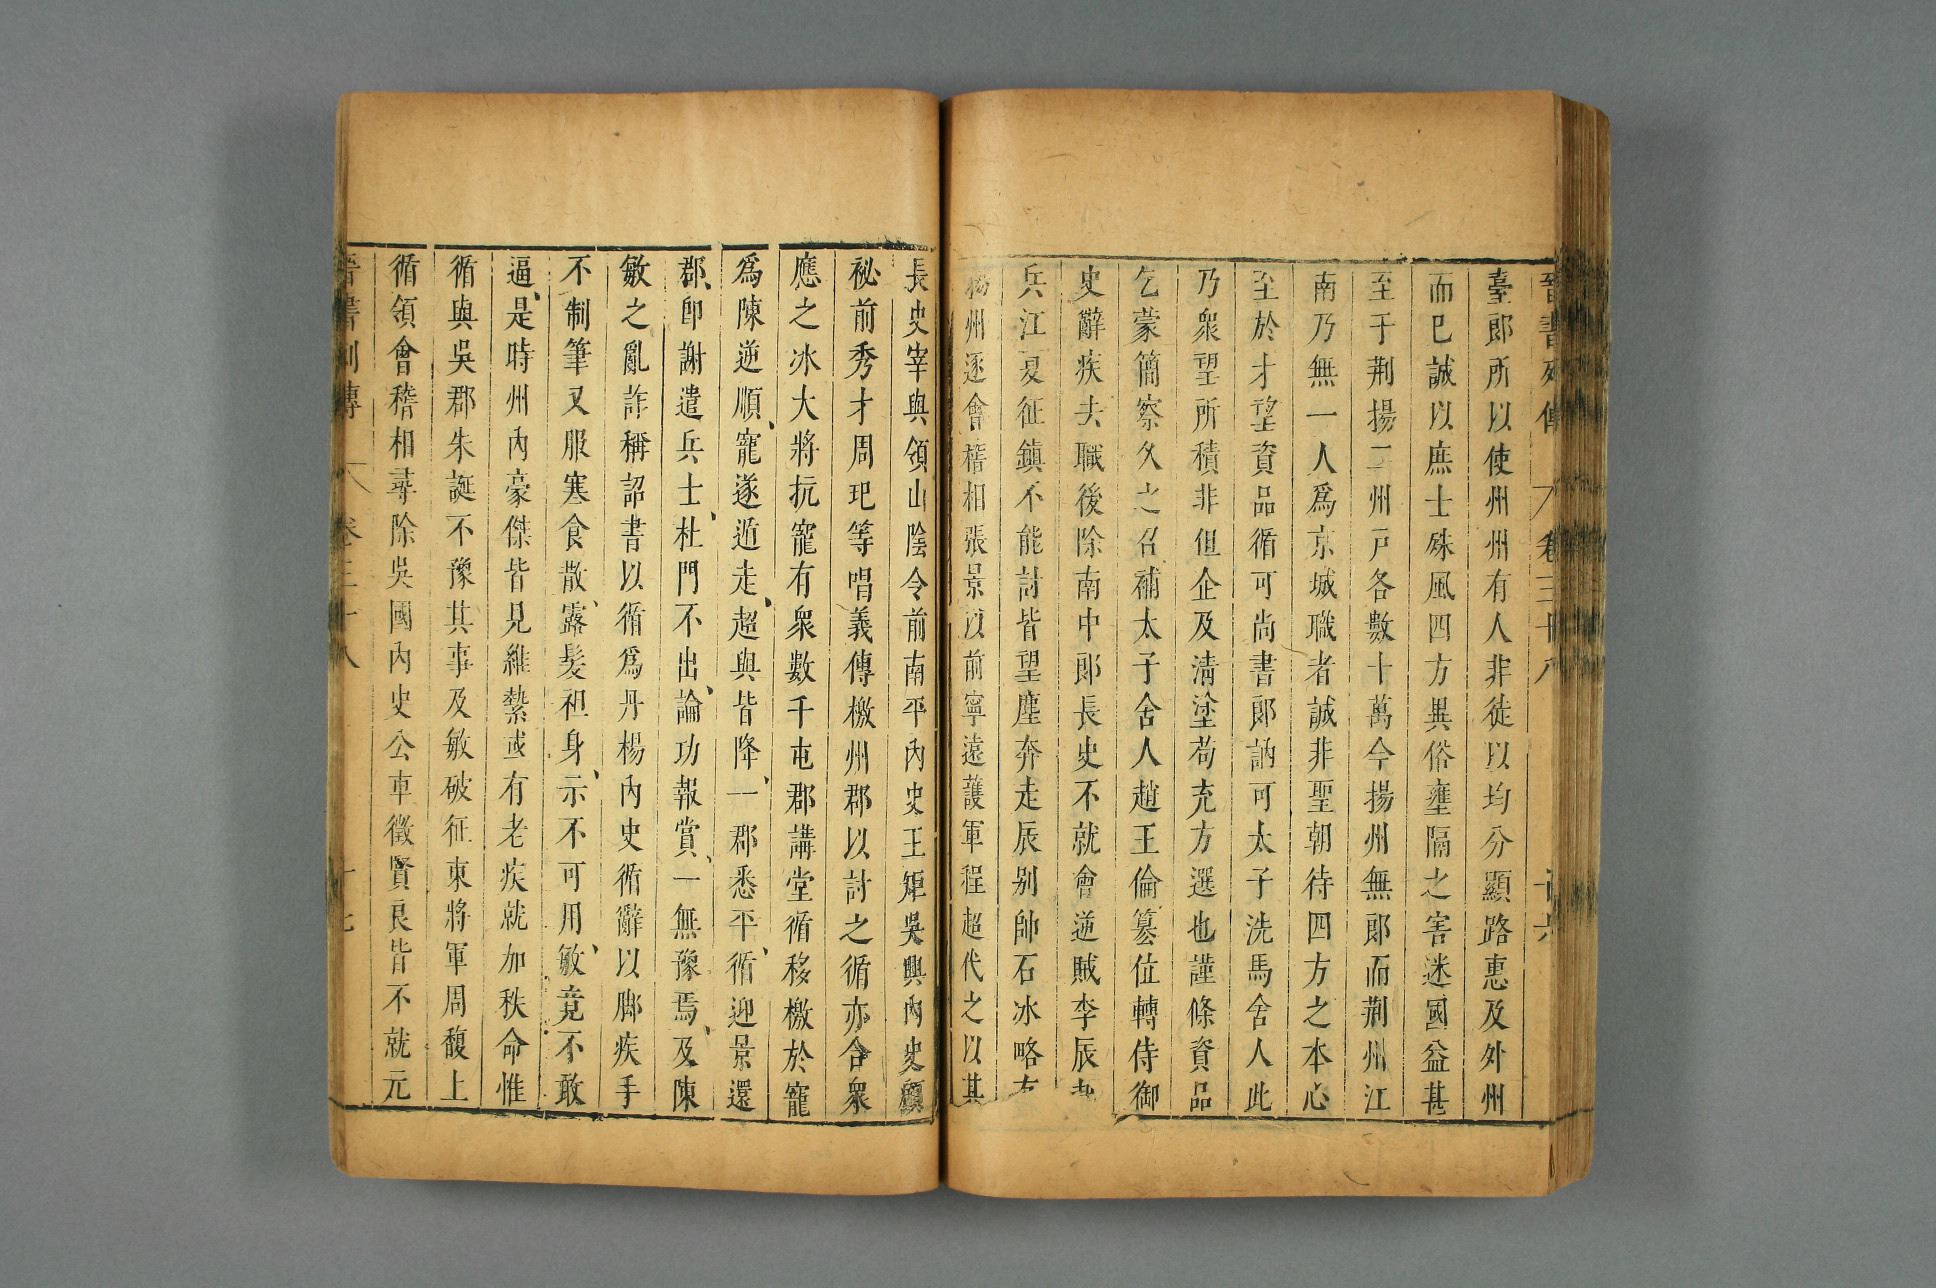 晉書列傳 卷三十八 十六
臺郎所以使州州有人非徒以均分顯路惠及外州
而已誠以庶士殊風四方異俗壅隔之害迷國益甚
至于荆揚二州戸各數十萬今揚州無郎而荆州江
南乃無一人爲京城職者誠非聖朝待四方之本心
至於才望資品循可尚書郎訥可太子洗馬舍人此
乃衆望所積非但企及清塗苟充方選也謹條資品
乞蒙簡察久之召補太子舍人趙王倫簒位轉侍御
史辭疾去職後除南中郎長史不就會逆賊李辰
兵江夏征鎮不能討皆望塵奔走辰别帥石冰略有
揚州逐會稽相張景以前寧遠護軍程超代之以其
長史宰與領山陰令前南平内史王矩吳興内史顧
祕前秀才周玘等唱義傳檄州郡以討之循亦合衆
應之冰大將抗寵有衆數千屯郡講堂循移檄於寵
爲陳逆順寵遂遁走超與皆降一郡悉平循迎景還
郡卽謝遣兵士杜門不出論功報賞一無豫焉及陳
敏之亂詐稱詔書以循爲丹楊内史循辭以脚疾手
不制筆又服寒食散露髮袒身示不可用敏竟不敢
逼是時州内豪傑皆見維縶或有老疾就加秩命惟
循與吳郡朱誕不豫其事及敏破征東將軍周馥上
循領會稽相尋除吳國内史公車徵賢良皆不就元
晉書列傳 卷三十八 十七